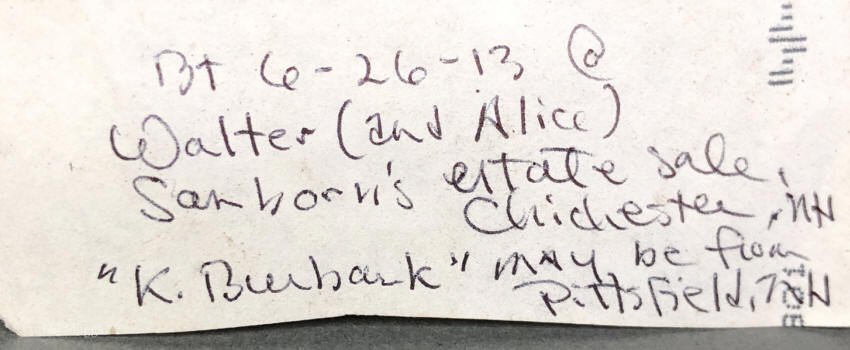 Bt 6-26-13 @
Walter (and Alice)
Sanborn's estate sale,
Chichester, NH
"K. Burbank" may be from
Pittsfield, NH